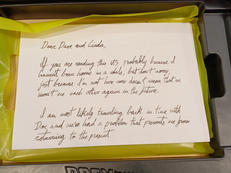 Dear Dave and Linda,
If you are reading this it's probably because I
haven't been home in a while, but don't worry,
just because I'm not here now doesn't mean that we
won't see each other again in the future.
I am most likely traveling back in time with
Doc and we've had a problem that prevents me from
returning to the present.